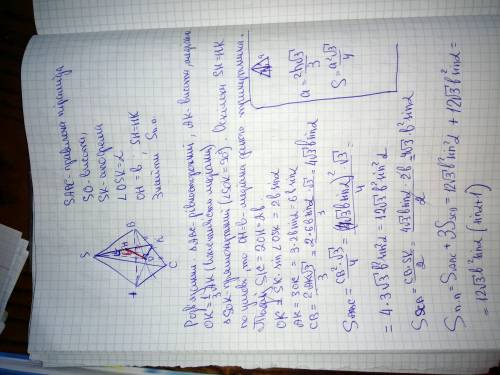 SABC - правильна піраміда
SO - висота,
SK - апофема
∠OSK = α
OH = b, SH = HK
Знайти Sп.п.
S
A
B
C
O
K
H
Розв'язання ΔABC - рівносторонній, AK - висота, медіана
OK = 1/3 AK (властивість медіани)
ΔSOK - прямокутний (∠SOK = 90°). Оскільки SH = HK
по умові, то OH = b - медіана цього трикутника.
Тому SK = 2OH = 2b
OK = SK · sin∠OSK = 2b sinα
AK = 3OK = 3·2b sinα = 6b sinα
CB = 2AK√3/3 = 2·6b sinα·√3/3 = 4√3 b sinα
SΔABC = CB²·√3/4 = (4√3 b sinα)²·√3/4 =
= 4·3√3 b² sin²α = 12√3 b² sin²α
SΔSCB = CB·SK/2 = 4√3 b sinα · 2b/2 = 4√3 b² sinα
Sп.п = SΔABC + 3SΔSCB = 12√3 b² sin²α + 12√3 b² sinα =
= 12√3 b² sinα (sinα + 1)
h
a
a = 2h√3/3
S = a²√3/4